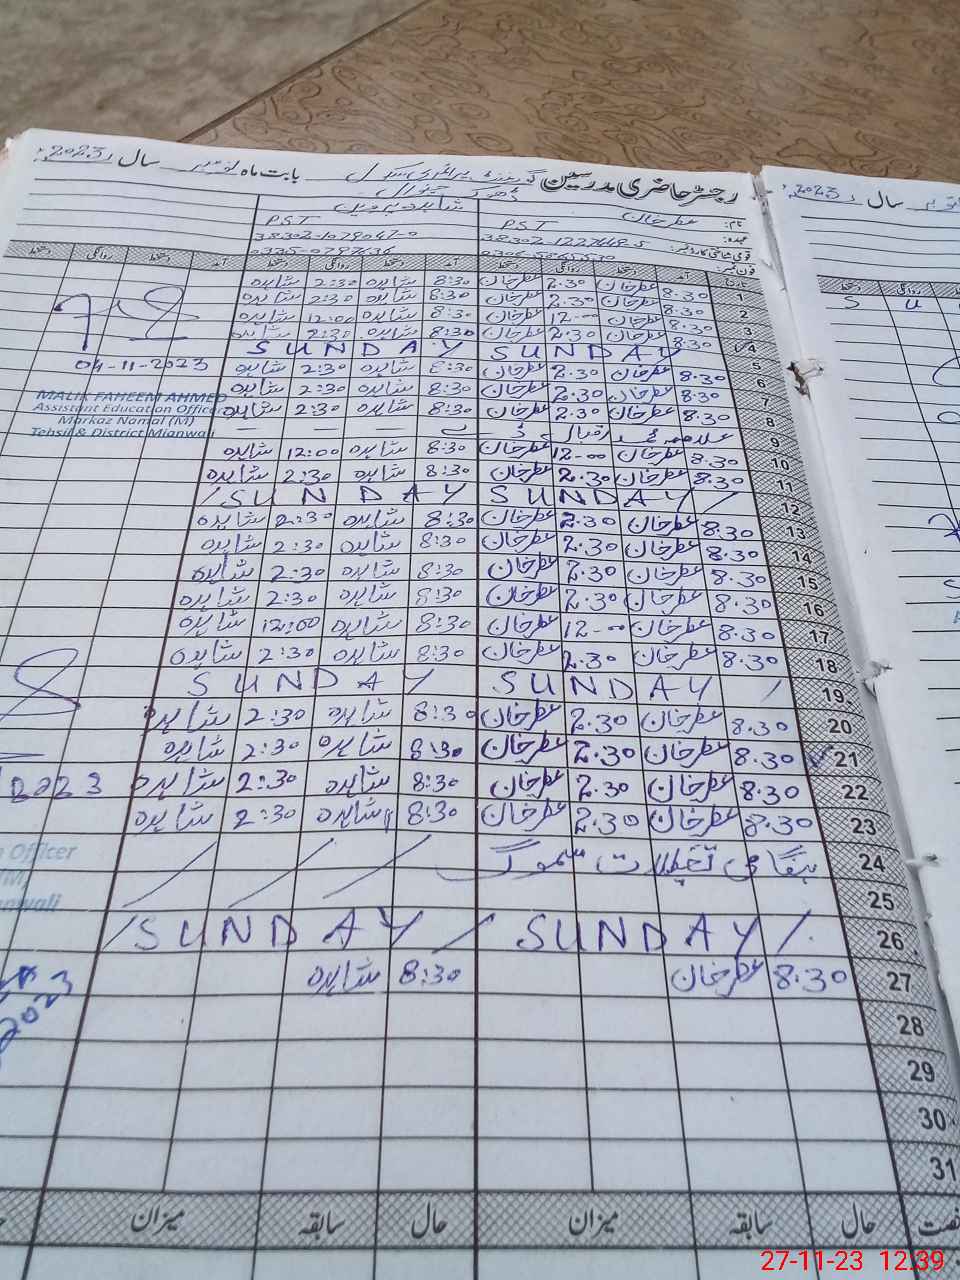 رجسٹر حاضری مدرسین گورنمنٹ پرائمری سکول بابت ماہ نومبر سال 2023ء
ڈھوک
نام: عطر خان شاہدہ پروین
عہدہ: PST PST
قومی شناختی کارڈ نمبر: 38302-1227448-5 38302-1079047-0
فون نمبر:
تاریخ آمد دستخط روانگی دستخط آمد دستخط روانگی دستخط آمد دستخط روانگی دستخط
1 8.30 عطر خان 2.30 عطر خان 8:30 شاہدہ 2:30 شاہدہ
2 8.30 عطر خان 2.30 عطر خان 8:30 شاہدہ 2:30 شاہدہ
3 8.30 عطر خان 12-00 عطر خان 8:30 شاہدہ 12:00 شاہدہ
4 8.30 عطر خان 2.30 عطر خان 8:30 شاہدہ 2:30 شاہدہ
5 SUNDAY SUNDAY
04-11-2023
6 8.30 عطر خان 2.30 عطر خان 8:30 شاہدہ 2:30 شاہدہ
7 8.30 عطر خان 2.30 عطر خان 8:30 شاہدہ 2:30 شاہدہ
8 8.30 عطر خان 2.30 عطر خان 8:30 شاہدہ 2:30 شاہدہ
MALIK FAHEEM AHMED
Assistant Education Officer
Markaz Namal (M)
Tehsil & District Mianwali
9 علامہ محمد اقبال ڈے
10 8.30 عطر خان 12-00 عطر خان 8:30 شاہدہ 12:00 شاہدہ
11 8.30 عطر خان 2.30 عطر خان 8:30 شاہدہ 2:30 شاہدہ
12 SUNDAY / / SUNDAY
13 8.30 عطر خان 2.30 عطر خان 8:30 شاہدہ 2:30 شاہدہ
14 8.30 عطر خان 2.30 عطر خان 8:30 شاہدہ 2:30 شاہدہ
15 8.30 عطر خان 2.30 عطر خان 8:30 شاہدہ 2:30 شاہدہ
16 8.30 عطر خان 2.30 عطر خان 8:30 شاہدہ 2:30 شاہدہ
17 8.30 عطر خان 12-00 عطر خان 8:30 شاہدہ 12:00 شاہدہ
18 8.30 عطر خان 2.30 عطر خان 8:30 شاہدہ 2:30 شاہدہ
19 SUNDAY / SUNDAY
20 8.30 عطر خان 2.30 عطر خان 8:30 شاہدہ 2:30 شاہدہ
21 8.30 عطر خان 2.30 عطر خان 8:30 شاہدہ 2:30 شاہدہ
22 8.30 عطر خان 2.30 عطر خان 8:30 شاہدہ 2:30 شاہدہ
2023
23 8.30 عطر خان 2.30 عطر خان 8:30 شاہدہ 2:30 شاہدہ
24 تعطیلات سموگ
Officer
25
26 SUNDAY / / SUNDAY /
27 8.30 عطر خان 8:30 شاہدہ
2023
28
29
30
31
حال سابقہ میزان حال سابقہ میزان
سال 2023ء
روانگی دستخط
S U
27-11-23 12.39